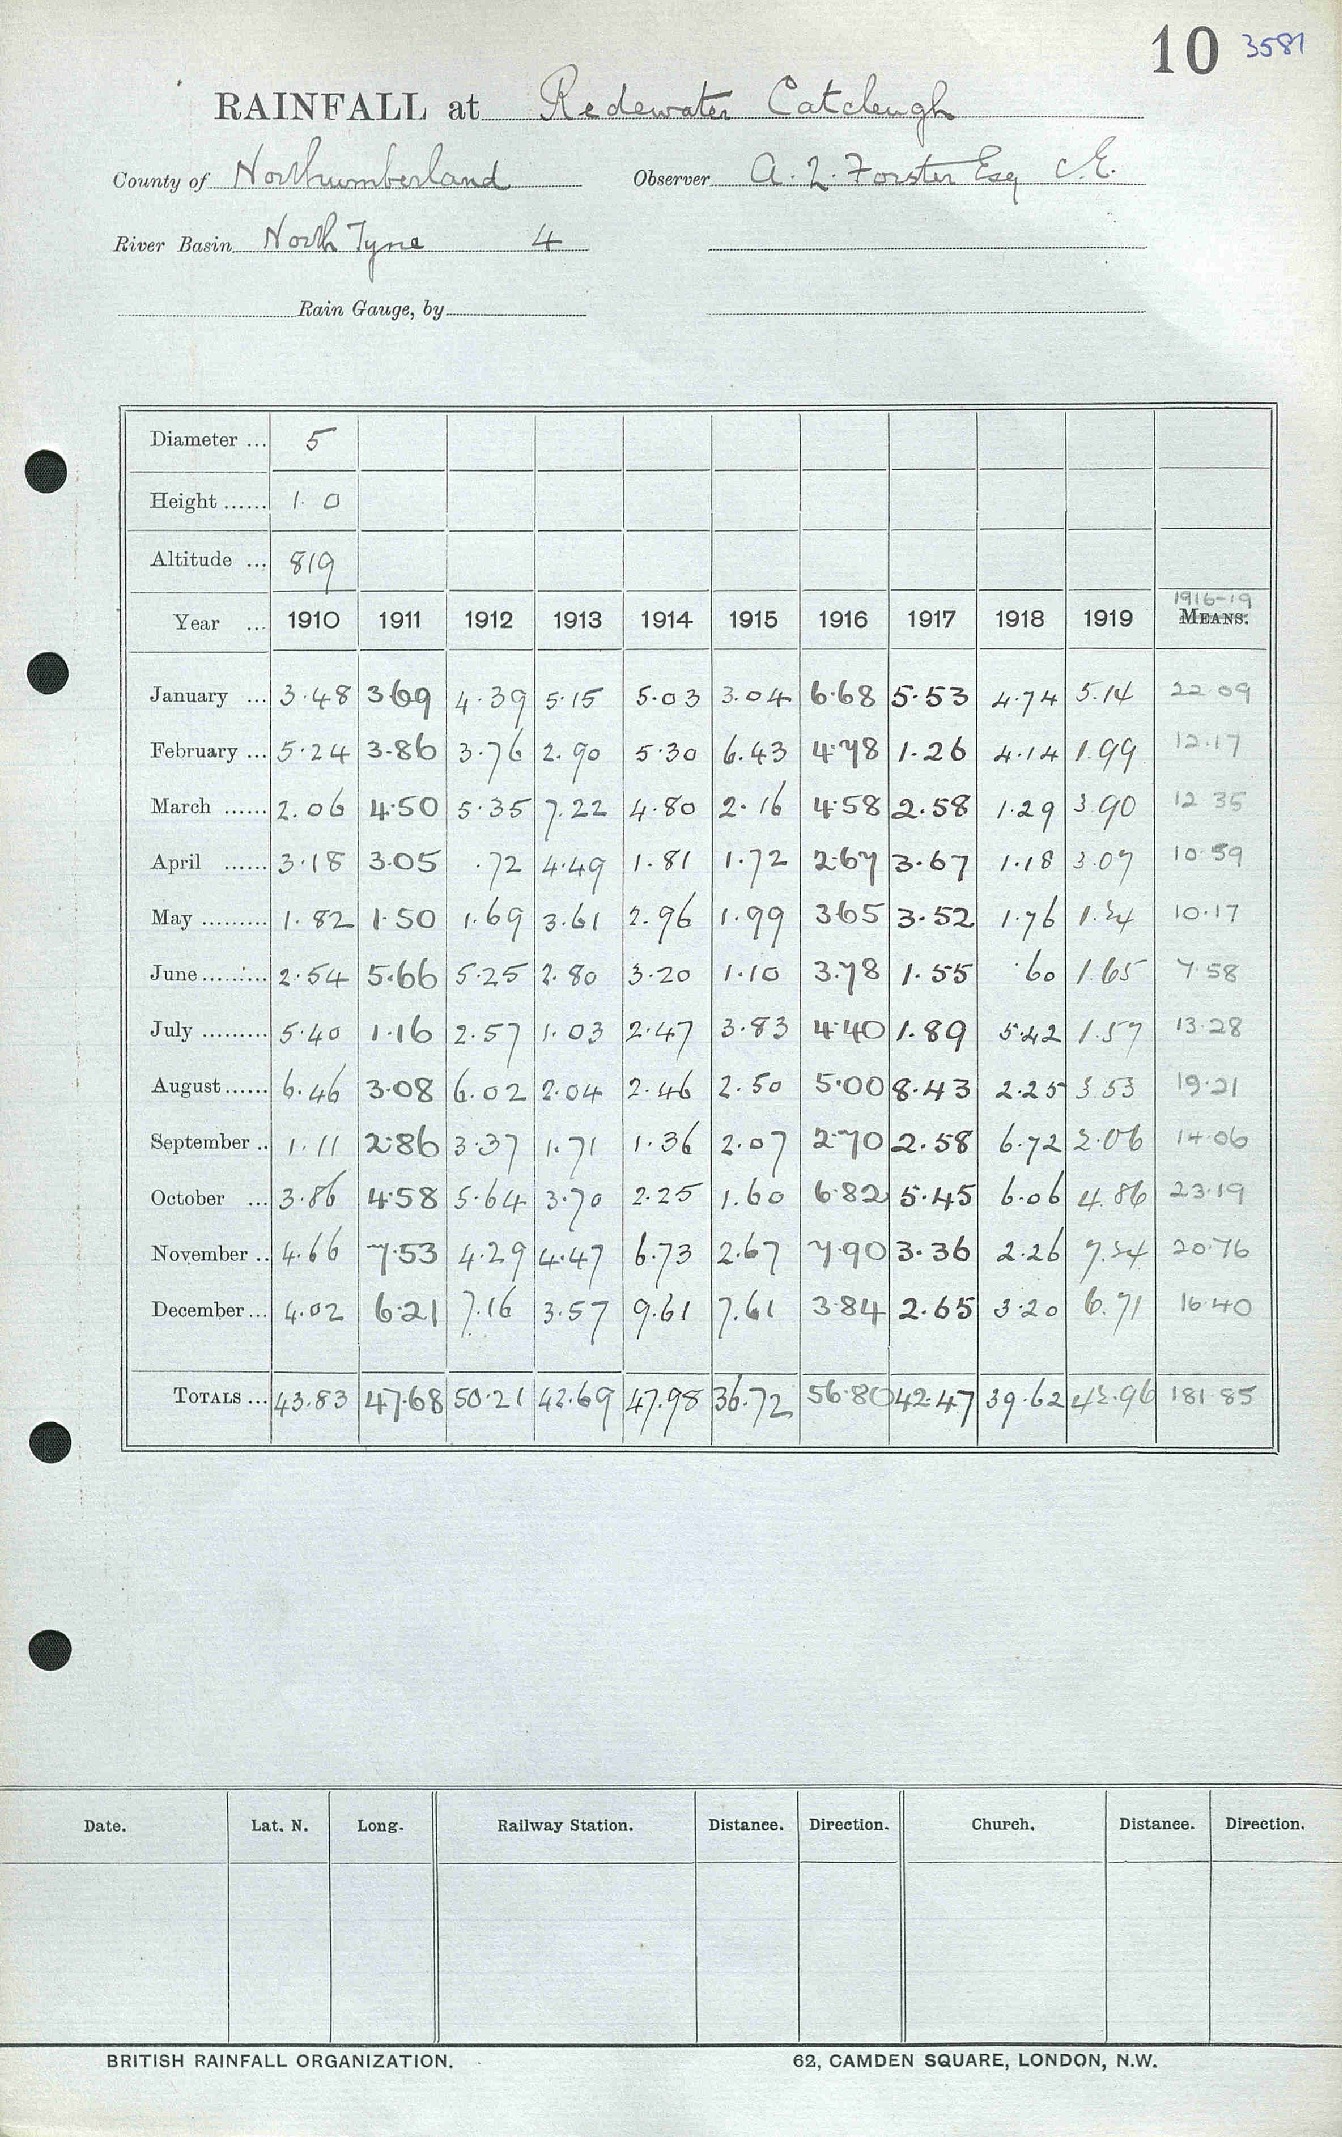 10 3581
RAINFALL at Redewater Catcleugh
County of Northumberland Observer A. L. Forster Esq C.E.
River Basin North Tyne 4
Rain Gauge, by
Diameter ... 5
Height ...... 1. 0
Altitude ... 819
1916-19
Year ... 1910 1911 1912 1913 1914 1915 1916 1917 1918 1919 MEANS.
January ... 3.48 3.69 4.39 5.15 5.03 3.04 6.68 5.53 4.74 5.14 22.09
February ... 5.24 3.86 3.76 2.90 5.30 6.43 4.78 1.26 4.14 1.99 12.17
March ...... 2.06 4.50 5.35 7.22 4.80 2.16 4.58 2.58 1.29 3.90 12.35
April ...... 3.18 3.05 .72 4.49 1.81 1.72 2.67 3.67 1.18 3.07 10.59
May ......... 1.82 1.50 1.69 3.61 2.96 1.99 3.65 3.52 1.76 1.24 10.17
June ......... 2.54 5.66 5.25 2.80 3.20 1.10 3.78 1.55 .60 1.65 7.58
July ......... 5.40 1.16 2.57 1.03 2.47 3.83 4.40 1.89 5.42 1.57 13.28
August ...... 6.46 3.08 6.02 2.04 2.46 2.50 5.00 8.43 2.25 3.53 19.21
September .. 1.11 2.86 3.37 1.71 1.36 2.07 2.70 2.58 6.72 2.06 14.06
October ... 3.86 4.58 5.64 3.70 2.25 1.60 6.82 5.45 6.06 4.86 23.19
November .. 4.66 7.53 4.29 4.47 6.73 2.67 7.90 3.36 2.26 7.24 20.76
December ... 4.02 6.21 7.16 3.57 9.61 7.61 3.84 2.65 3.20 6.71 16.40
TOTALS ... 43.83 47.68 50.21 42.69 47.98 36.72 56.80 42.47 39.62 42.96 181.85
Date. Lat. N. Long. Railway Station. Distance. Direction. Church. Distance. Direction.
BRITISH RAINFALL ORGANIZATION. 62, CAMDEN SQUARE, LONDON, N.W.